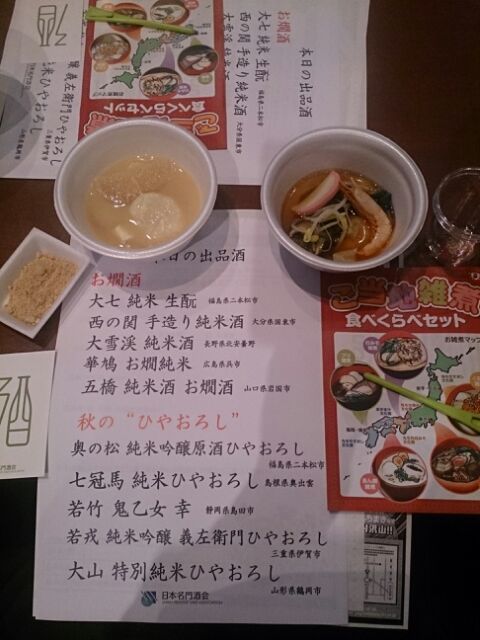 本日の出品酒
お燗酒
大七 純米 生酛 福島県二本松市
西の関 手造り純米酒 大分県国東市
本日の出品酒
お燗酒
大七 純米 生酛 福島県二本松市
西の関 手造り純米酒 大分県国東市
大雪渓 純米酒 長野県北安曇野
華鳩 お燗純米 広島県呉市
五橋 純米酒 お燗酒 山口県岩国市
秋の“ひやおろし”
奥の松 純米吟醸原酒ひやおろし
福島県二本松市
七冠馬 純米ひやおろし 島根県奥出雲
若竹 鬼乙女 幸 静岡県島田市
若戎 純米吟醸 義左衛門ひやおろし
三重県伊賀市
大山 特別純米ひやおろし
山形県鶴岡市
日本名門酒会
ご当地雑煮
食べくらべセット
お雑煮マップ
食べくらべセット
義左衛門ひやおろし
三重県伊賀市
米ひやおろし
山形県鶴岡市